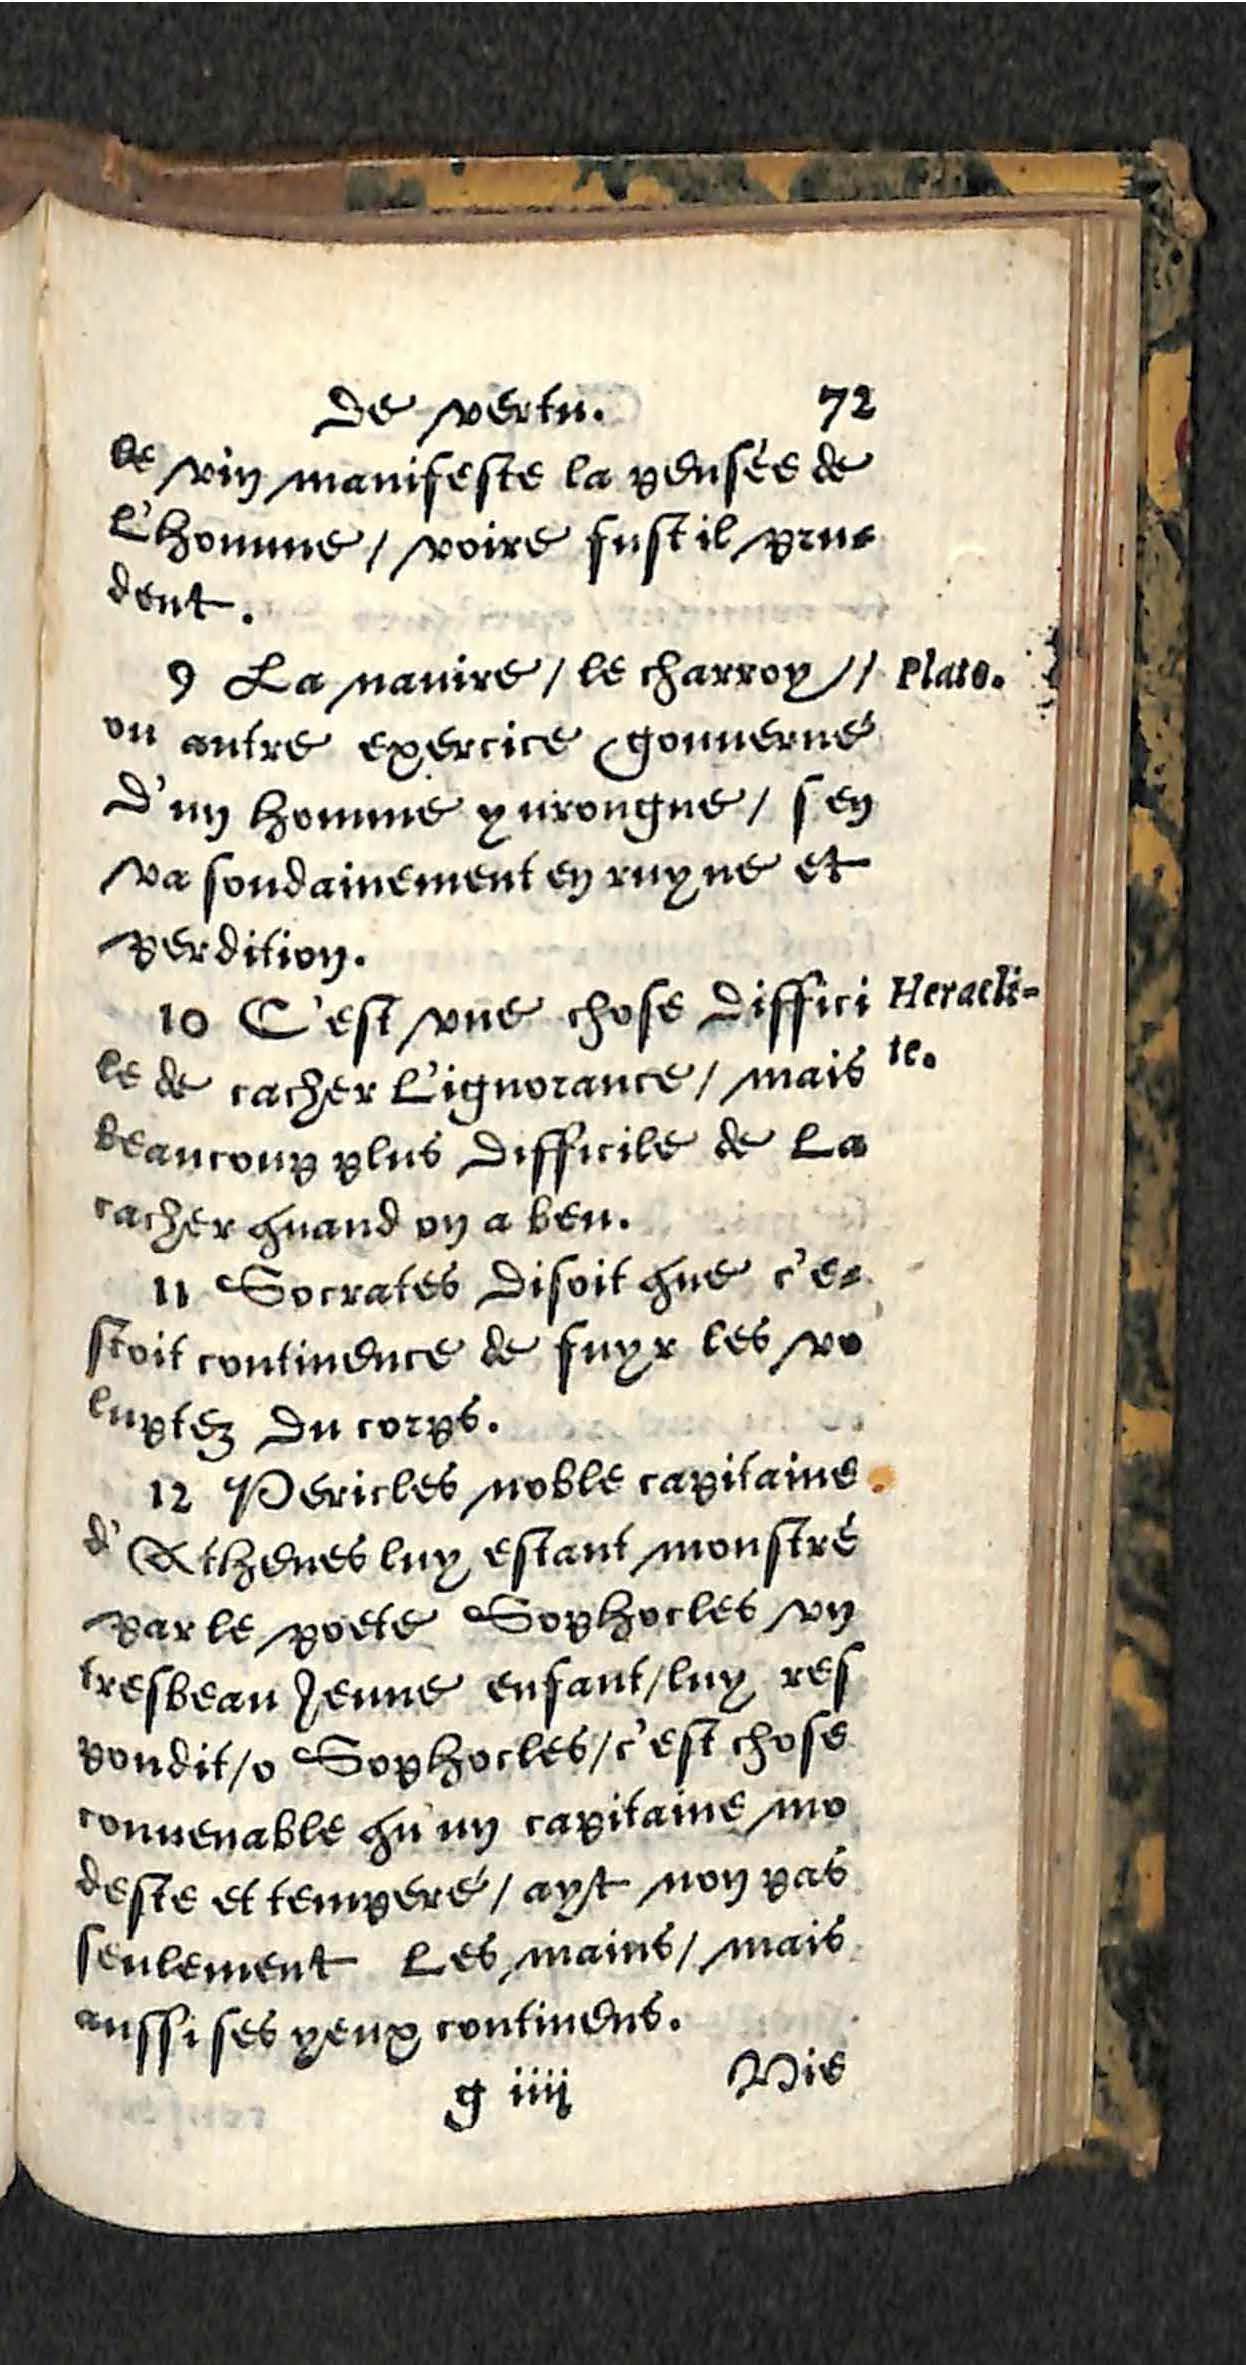 De vertu. 72
le vin manifeste la pensée de
l'homme / voire fust il pru-
dent.
9 La nauire / le charroy // Plato.
ou autre exercice gouuerné
d'un homme yurongne / s'en
va soudainement en ruyne et
perdition.
10 C'est vne chose diffici Heracli-
le de cacher l'ignorance / mais te.
beaucoup plus difficile de la
cacher quand on a beu.
11 Socrates disoit que c'e-
stoit continence de fuyr les vo
luptez du corps.
12 Pericles noble capitaine
d'Athenes luy estant monstré
par le poete Sophocles vn
tresbeau jeune enfant / luy res
pondit / o Sophocles / c'est chose
conuenable qu'un capitaine mo
deste et temperé / ayt non pas
seulement les mains / mais
aussi ses yeux continens.
g iiij Vie